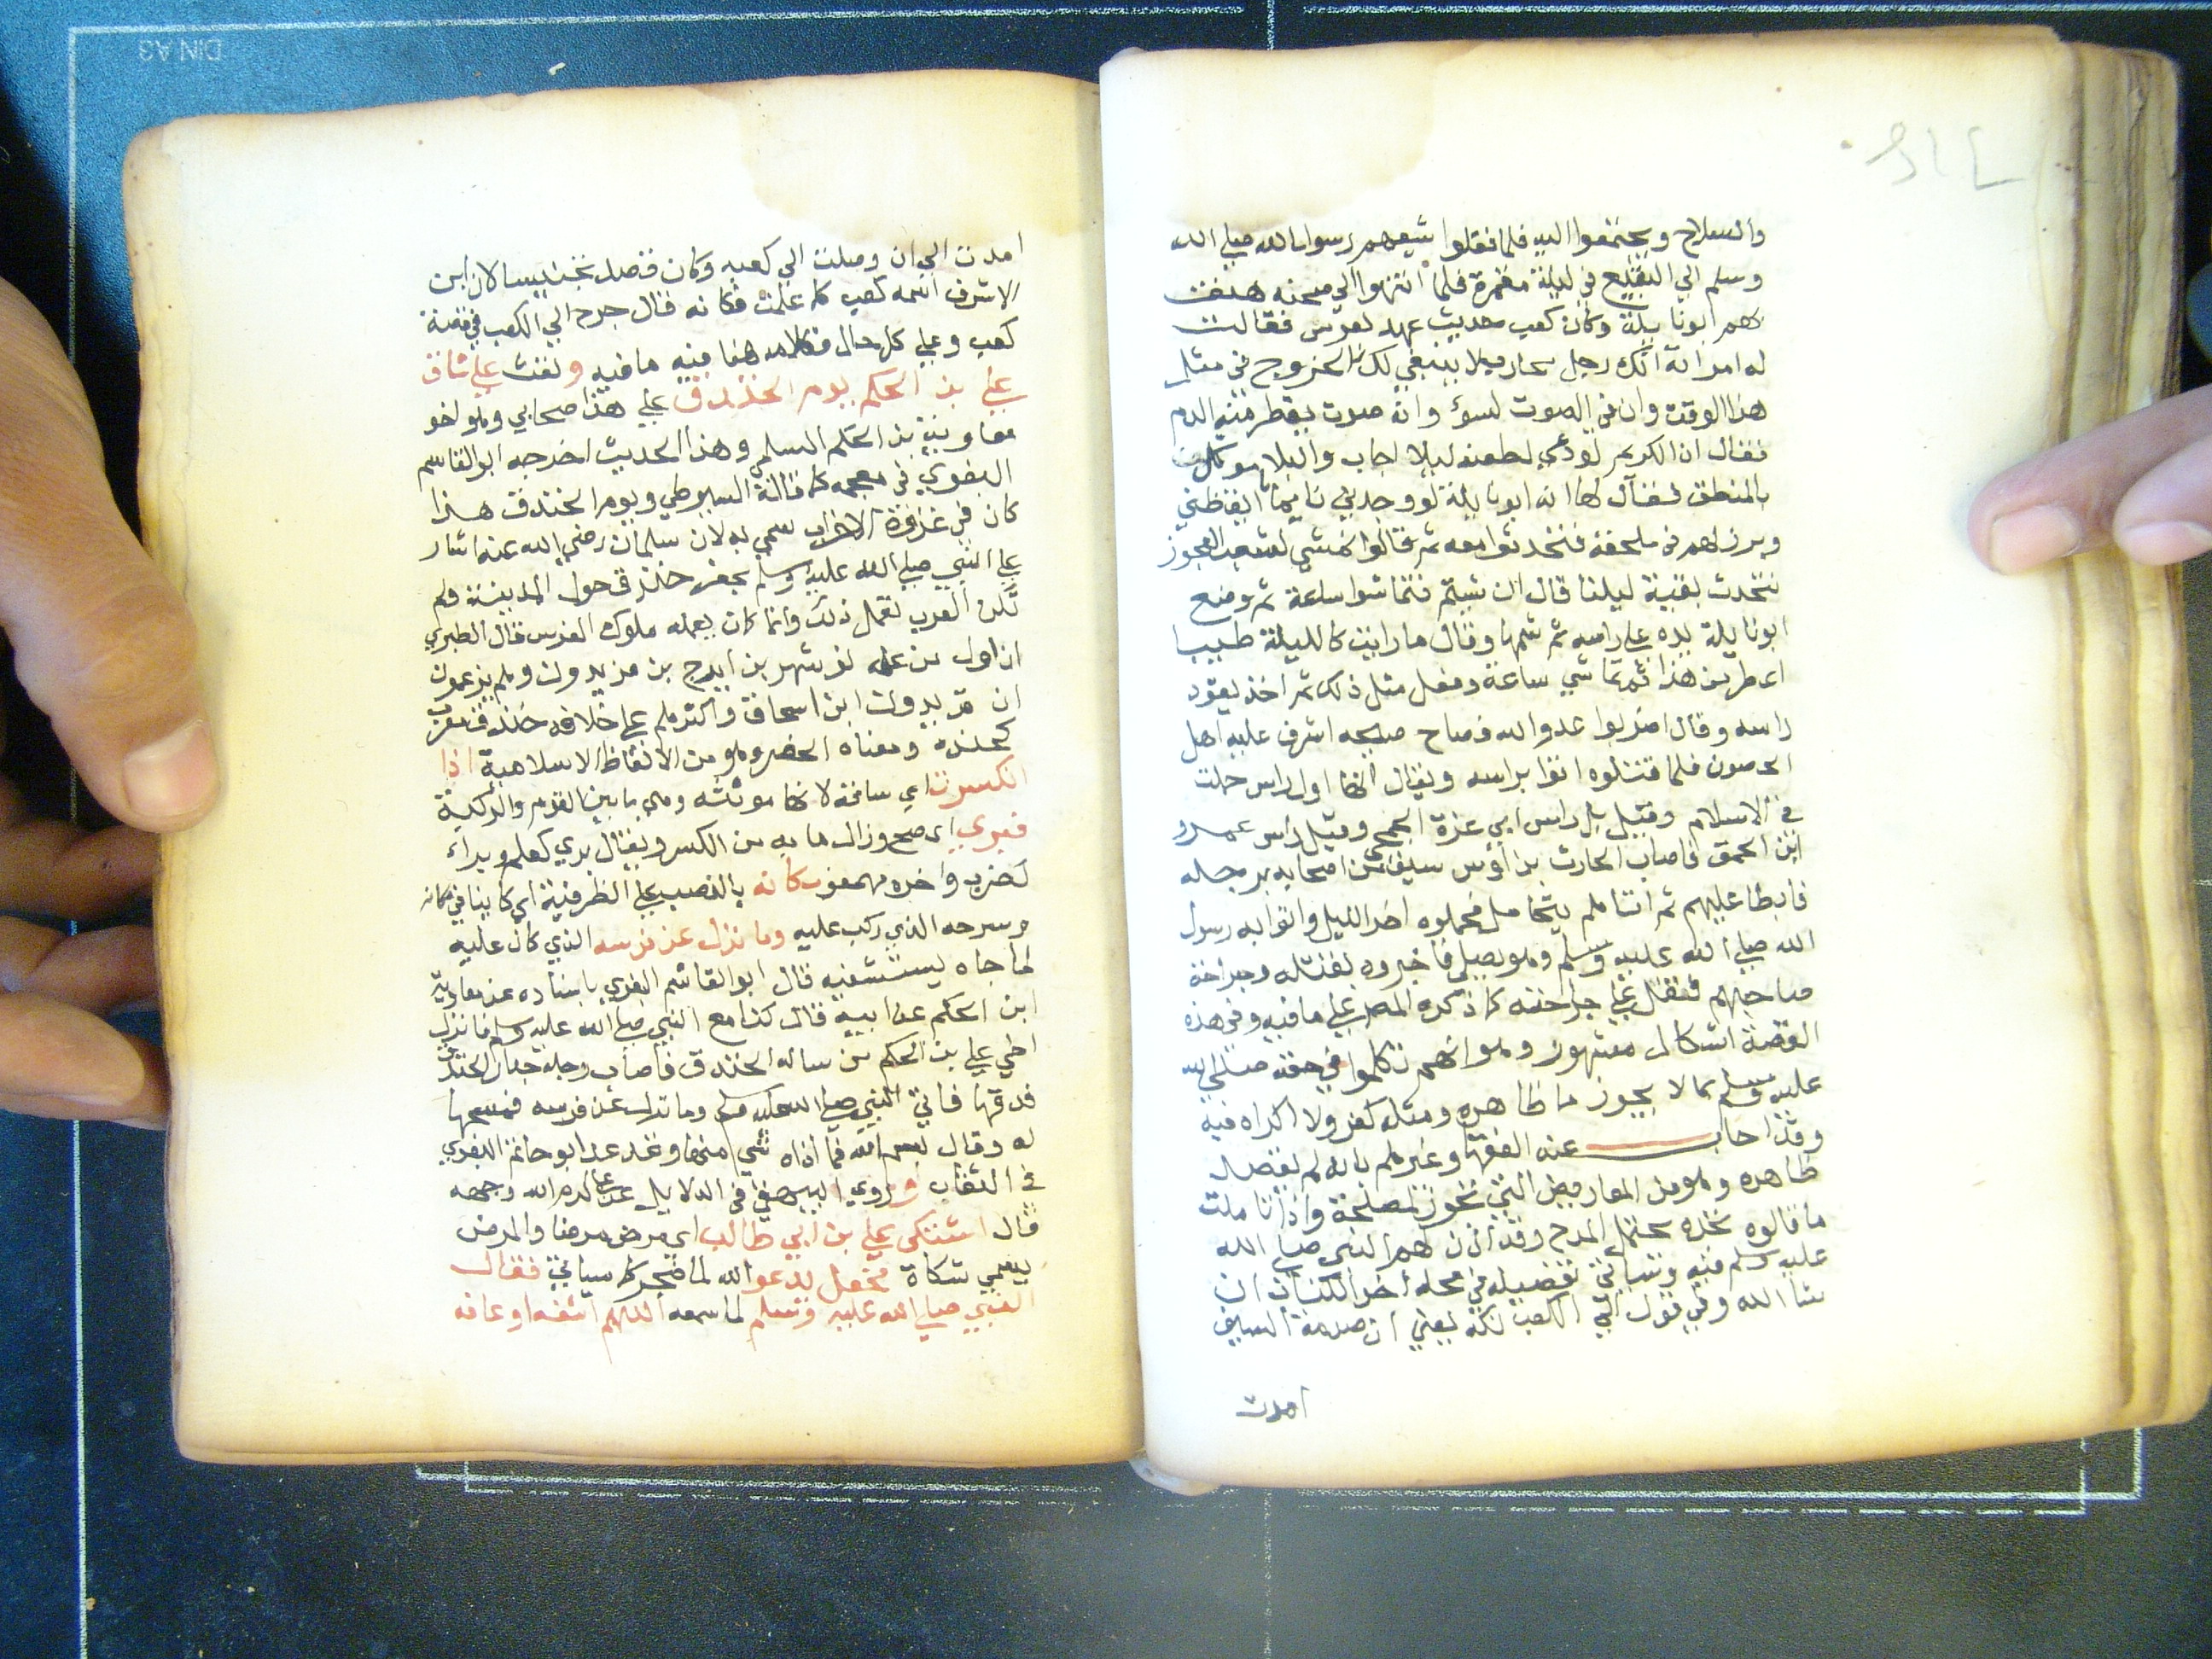 والسلاح ويجتمعوا اليه فلما فعلوا شيعهم رسول الله صلي الله
وسلم الي البقيع في ليلة مقمرة فلما انتهوا الي حصنه هتف
بهم ابو نايلة وكان كعب حديث عهد بعرس فقالت
له امراته انك رجل محارب لا ينبغي لك الخروج في مثل
هذا الوقت وان في الصوت لسوء وانه صوت يقطر منه الدم
فقال ان الكريم لو دعي لطعنه ليلا اجاب والبلا موكل
بالمنطق فقال لها انه ابو نايلة لو وجدني نايما ايقظني
وبرز لهم في ملحفة فتحدثوا معه ثم قالوا نمشي لشعب العجوز
نتحدث بقية ليلنا قال ان شيتم فتماشوا ساعة ثم وضع
ابو نايلة يده علي راسه ثم شمها وقال ما رايت كالليلة طيبا
اعطر من هذا ثم تماشي ساعة وفعل مثل ذلك ثم اخذ بفود
راسه وقال اضربوا عدو الله فصاح صيحة اشرف عليه اهل
الحصون فلما قتلوه اتوا براسه ويقال انها اول راس حملت
في الاسلام وقيل بل راس ابي عزة الجمحي وقيل راس عمرو
ابن الحمق فاصاب الحارث بن اوس سيف من اصحابه برجله
فابطا عليهم ثم اتاهم يتحامل فحملوه اخر الليل واتوا به رسول
الله صلي الله عليه وسلم وهو يصلي فاخبروه بقتله وجراحة
صاحبهم فتفل علي جراحته كما ذكره المصـ علي ما فيه وفي هذه
القصة اشكال مشهور وهو انهم تكلموا في حقه صلي الله
عليه وسلم بما لا يجوز ما ظاهره ومثله كفر ولا اكراه فيه
وقد اجاب عنه الفقها وغيرهم بانه لم يقصد
ظاهره وهو من المعاريض التي تجوز لمصلحة واذا تاملت
ما قالوه تجده محتمل المدح وقد اذن لهم النبي صلي الله
عليه وسلم فيه وسياتي تفصيله في محله اخر الكتاب ان
شا الله وفي قول الي الكعب نكتة يعني ان ضربة السيف
امدت
امدت الي ان وصلت الي كعبه وكان فصل تجنيسا لان ابن
الاشرف اسمه كعب كما علمت فكانه قال جرح الي الكعب في قصة
كعب وعلي كل حال فكلامه هنا فيه ما فيه ونفث علي ساق
علي بن الحكم يوم الخندق علي هذا صحابي وهو اخو
معاوية بن الحكم السلمي وهذا الحديث اخرجه ابو القاسم
البغوي في معجمه كما قاله السيوطي ويوم الخندق هذا
كان في غزوة الاحزاب سمي به لان سلمان رضي الله عنه اشار
علي النبي صلي الله عليه وسلم بحفر خندق حول المدينة ولم
تكن العرب تفعل ذلك وانما كان يعمله ملوك الفرس قال الطبري
ان اول من عمله بن ايرج بن فريدون وهم يزعمون
ان فريدون ابن اسحاق واكثرهم علي خلافه خندق معرب
كنده ومعناه الحفر وهو من الالفاظ الاسلامية اذا
انكسرت اي ساقه لانها مونثة وهي ما بين القدم والركبة
فبري اي صح وزال ما به من الكسر ويقال بري كعلم وبراء
كضرب واخره مهموز مكانه بالنصب علي الظرفية اي كاينا في مكانه
وسرجه الذي ركب عليه وما نزل عن فرسه الذي كان عليه
لما جاه يستشفيه قال ابو القاسم البغوي باسناده عن معاوية
ابن الحكم عن ابيه قال كنا مع النبي صلي الله عليه وسلم فانزل
اخي علي بن الحكم من ساله الخندق فاصاب رجله جدار الخندق
فدقها فاتي النبي صلي الله عليه وسلم وما نزل عن فرسه فمسحها
له وقال بسم الله فما اذاه شي منها ونحوه عن ابو حاتم البغوي
في الثقات وروي البيهقي في الدلايل عن علي كرم الله وجهه
قال اشتكي علي بن ابي طالب اي مرض مرضا والمرض
يسمي شكاة فجعل يدعو الله لما ضجر كما سياتي فقال
النبي صلي الله عليه وسلم لما سمعه اللهم اشفه او عافه